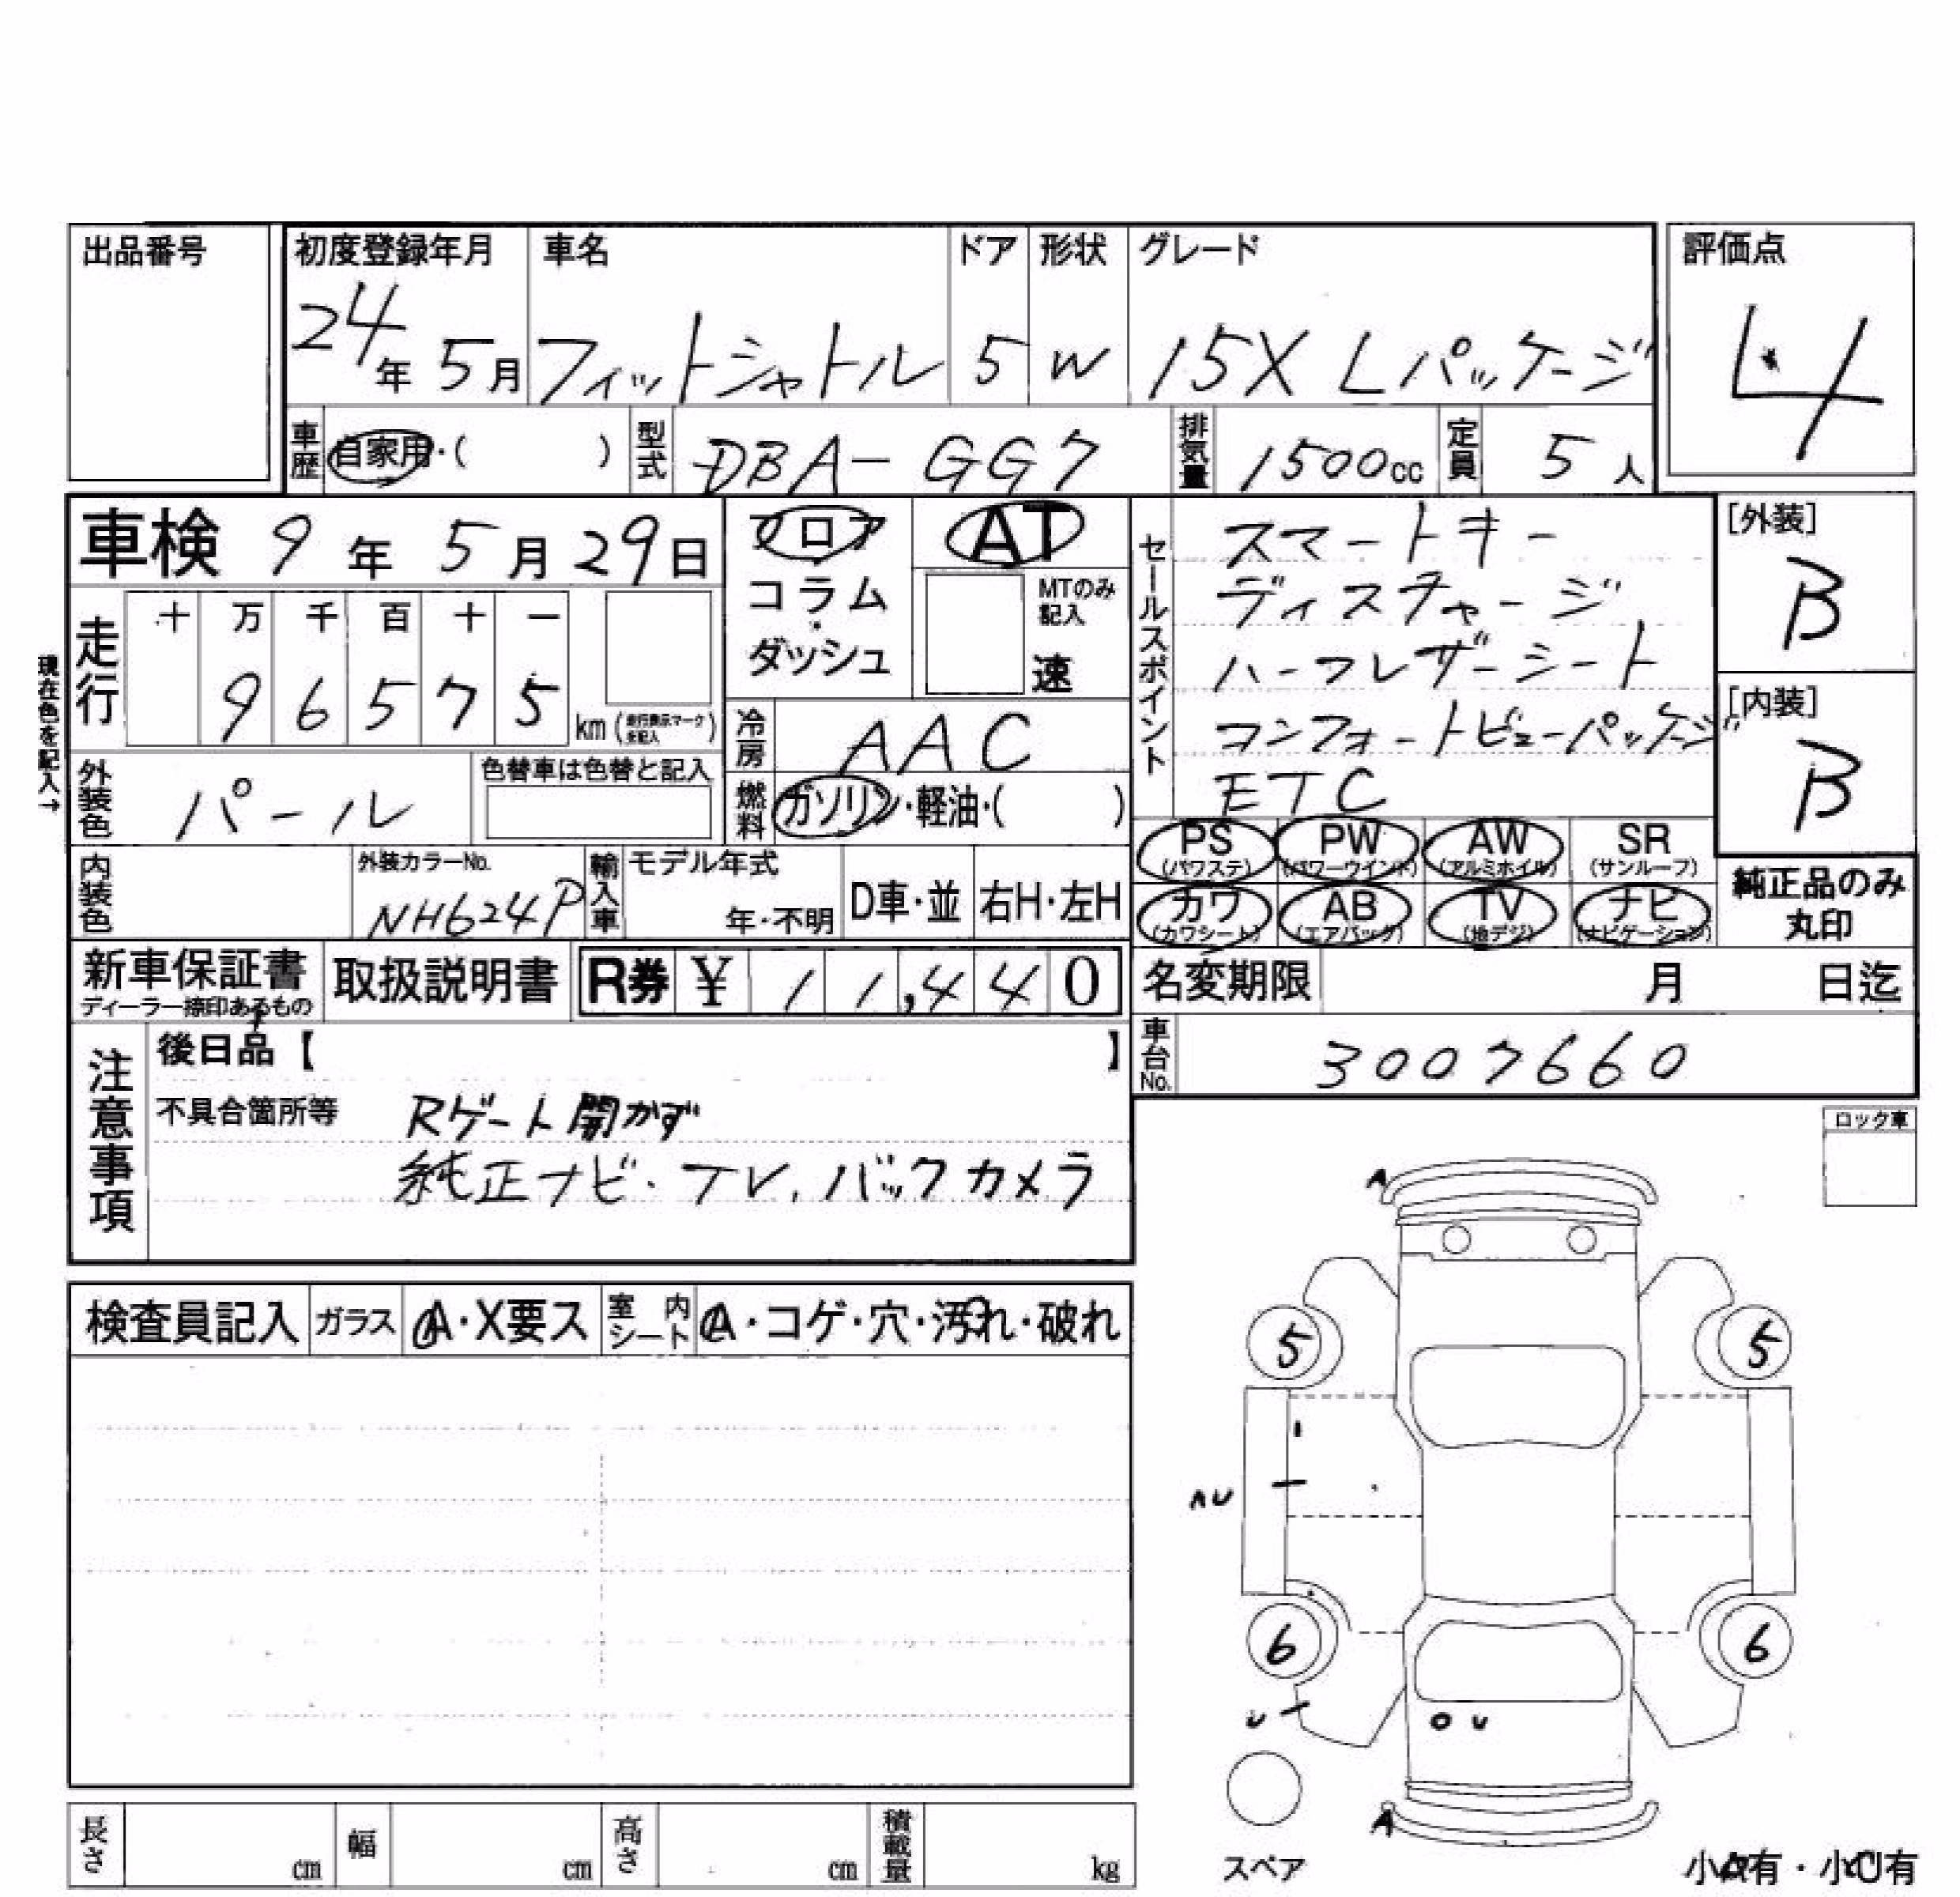 出品番号
初度登録年月 車名 ドア 形状 グレード 評価点
24年 5月 フィットシャトル 5 W 15X Lパッケージ 4
車歴 自家用・( ) 型式 DBA-GG7 排気量 1500cc 定員 5人
車検 9年 5月 29日
フロア
コラム
ダッシュ
AT
MTのみ
記入
速
現在色を記入→
走行 十 万 千 百 十 一
9 6 5 7 5 km (走行表示マーク未記入)
冷房 AAC
外装色 パール 色替車は色替と記入
燃料 ガソリン・軽油・( )
セールスポイント
スマートキー
ディスチャージ
ハーフレザーシート
コンフォートビューパッケージ
ETC
[外装]
B
[内装]
B
PS (パワステ) PW (パワーウインド) AW (アルミホイル) SR (サンルーフ)
カワ (カワシート) AB (エアバック) TV (地デジ) ナビ (ナビゲーション)
純正品のみ
丸印
内装色 外装カラーNo. NH624P 輸入車 モデル年式 年・不明 D車・並 右H・左H
新車保証書 ディーラー捺印あるもの 取扱説明書 R券 ¥ 11,440
名変期限 月 日迄
車台No. 3007660
注意事項
後日品【 】
不具合箇所等 Rゲート開かず
純正ナビ・TV, バックカメラ
ロック車
検査員記入 ガラス A・X要ス 室内シート A・コゲ・穴・汚れ・破れ
A
5 5
AU
6 6
U
O U
A
スペア
小A有・小U有
長さ cm 幅 cm 高さ cm 積載量 kg